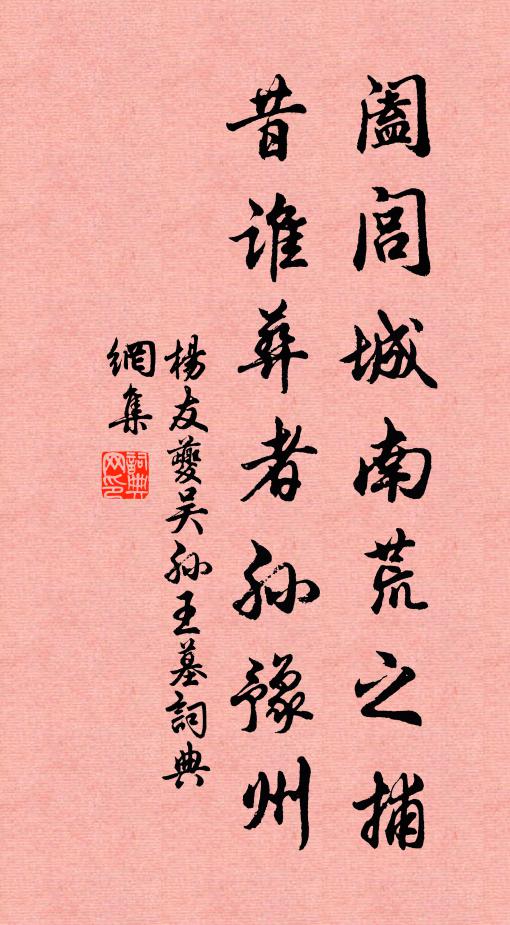 闔閭城南荒之捕
昔誰葬者孫豫州
楊友夔吳孫王墓詞典
網集
詞典網印